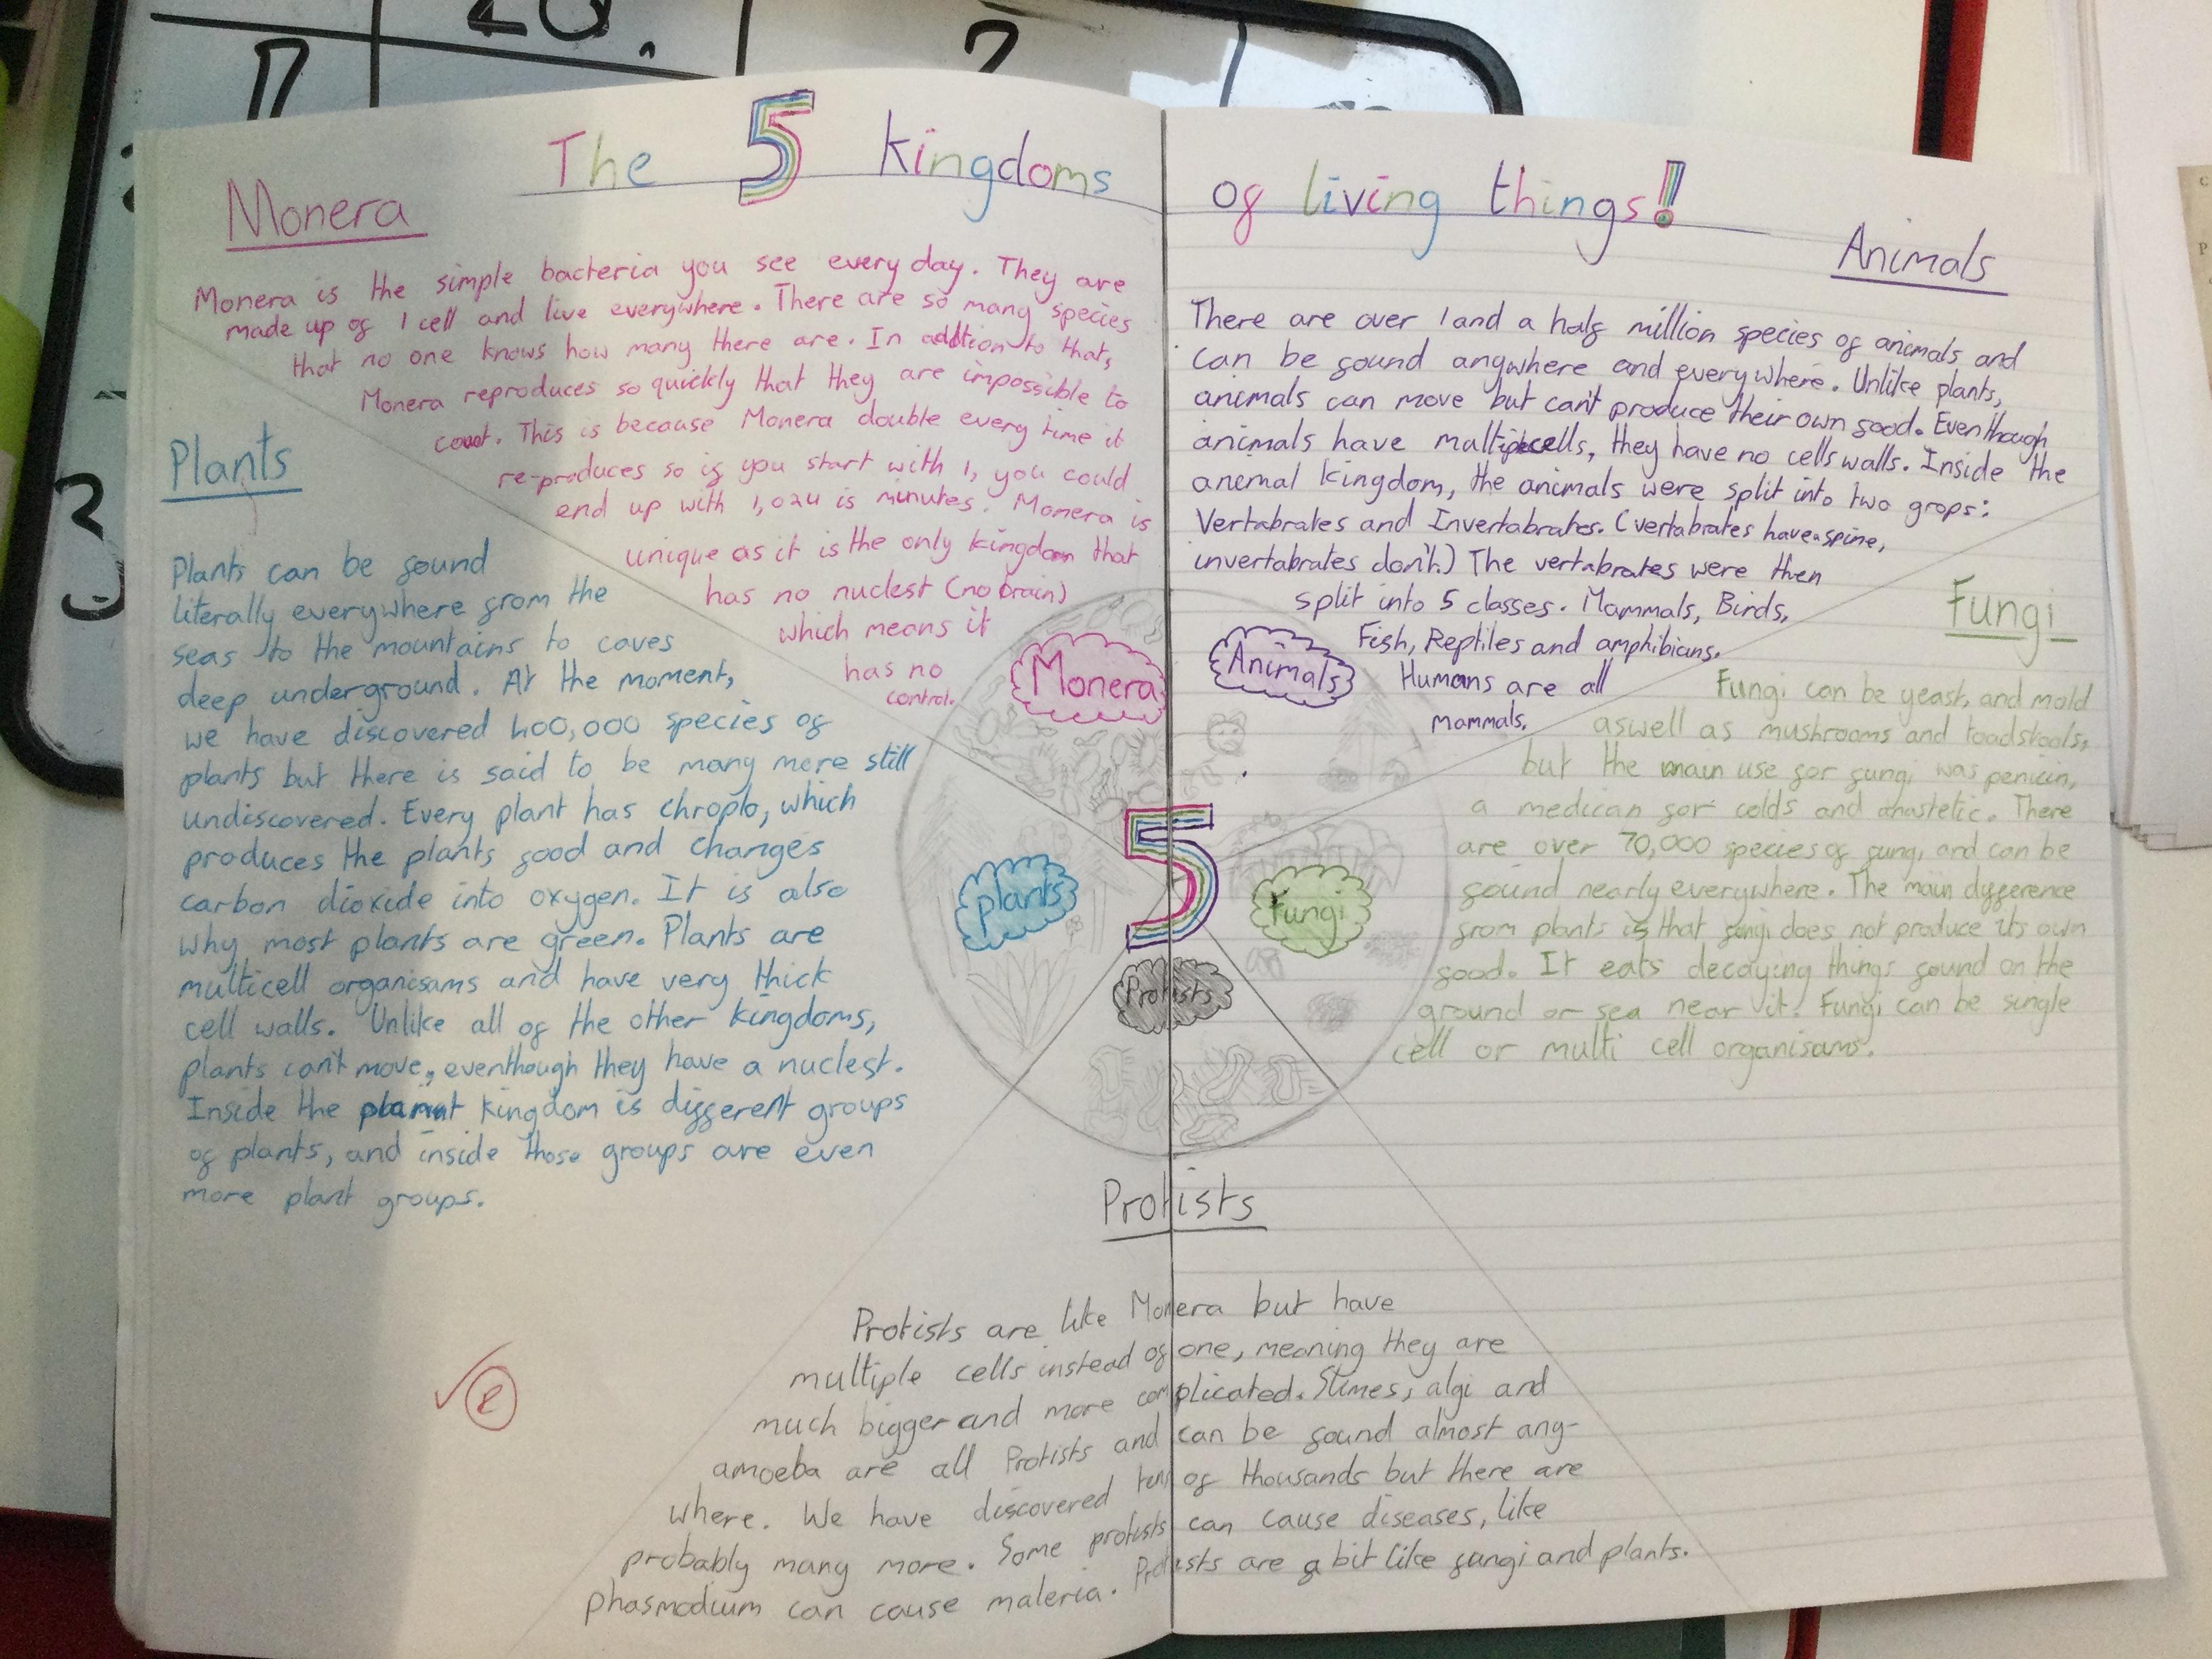 The 5 kingdoms of living things!
Monera
Monera is the simple bacteria you see every day. They are
made up of 1 cell and live everywhere. There are so many species
that no one knows how many there are. In addtion to that,
Monera reproduces so quickly that they are impossible to
count. This is because Monera double every time it
re-produces so if you start with 1, you could
end up with 1,024 is minutes. Monera is
unique as it is the only kingdom that
has no nuclest (no brain)
which means it
has no
control.
Plants
Plants can be found
literally everywhere from the
seas to the mountains to caves
deep underground. At the moment,
we have discovered 400,000 species of
plants but there is said to be many more still
undiscovered. Every plant has chroplo, which
produces the plants food and changes
carbon dioxide into oxygen. It is also
why most plants are green. Plants are
multicell organisams and have very thick
cell walls. Unlike all of the other kingdoms,
plants can't move, eventhough they have a nuclest.
Inside the plant kingdom is different groups
of plants, and inside those groups are even
more plant groups.
Animals
There are over 1 and a half million species of animals and
can be found anywhere and everywhere. Unlike plants,
animals can move but can't produce their own food. Even though
animals have multiple cells, they have no cells walls. Inside the
animal kingdom, the animals were split into two grops:
Vertabrates and Invertabrates. (vertabrates have a spine,
invertabrates don't.) The vertabrates were then
split into 5 classes. Mammals, Birds,
Fish, Reptiles and amphibians.
Humans are all
mammals.
Fungi
Fungi can be yeast, and mold
aswell as mushrooms and toadstools,
but the main use for fungi was penicin,
a medican for colds and anastetic. There
are over 70,000 species of fungi and can be
found nearly everywhere. The main difference
from plants is that fungi does not produce its own
food. It eats decaying things found on the
ground or sea near it. Fungi can be single
cell or multi cell organisams.
Monera
Animals
5
plants
Fungi
Protists
Protists
Protists are like Monera but have
multiple cells instead of one, meaning they are
much bigger and more complicated. Slimes, algi and
amoeba are all Protists and can be found almost any-
where. We have discovered tens of thousands but there are
probably many more. Some protists can cause diseases, like
phasmodium can cause maleria. Protists are a bit like fungi and plants.